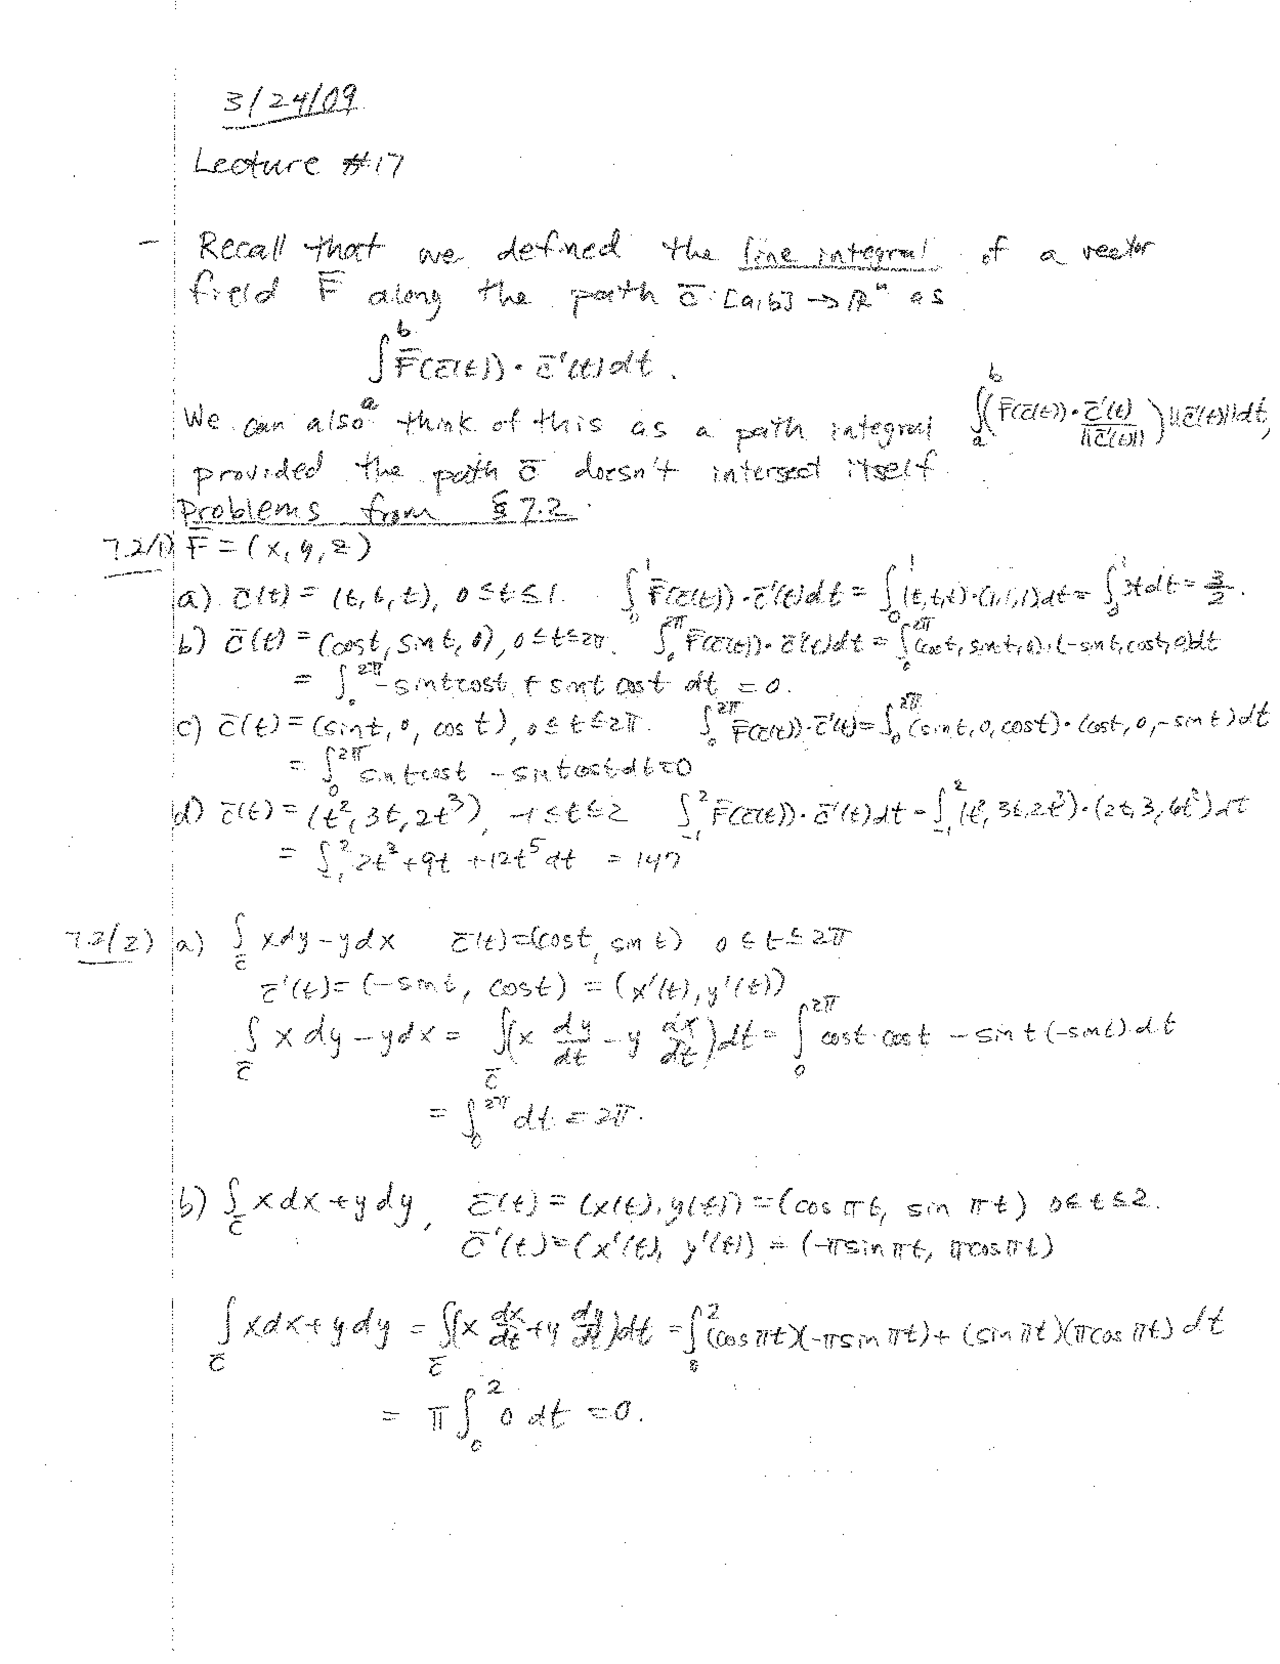 3/24/09
Lecture #17
- Recall that we defined the line integral of a vector
field F̄ along the path c̄: [a,b] → ℝⁿ as
∫ₐᵇ F̄(c̄(t)) · c̄'(t) dt.
We can also think of this as a path integral ∫ₐᵇ (F̄(c̄(t)) · c̄'(t)/||c̄'(t)||) ||c̄'(t)|| dt,
provided the path c̄ doesn't intersect itself.
Problems from § 7.2.
7.2/1) F̄ = (x, y, z)
a) c̄(t) = (t, t, t), 0 ≤ t ≤ 1. ∫₀¹ F̄(c̄(t)) · c̄'(t) dt = ∫₀¹ (t,t,t) · (1,1,1) dt = ∫₀¹ 3t dt = 3/2.
b) c̄(t) = (cos t, sin t, 0), 0 ≤ t ≤ 2π. ∫₀^2π F̄(c̄(t)) · c̄'(t) dt = ∫₀^2π (cos t, sin t, 0) · (-sin t, cos t, 0) dt
= ∫₀^2π -sin t cos t + sin t cos t dt = 0.
c) c̄(t) = (sin t, 0, cos t), 0 ≤ t ≤ 2π. ∫₀^2π F̄(c̄(t)) · c̄'(t) = ∫₀^2π (sin t, 0, cos t) · (cos t, 0, -sin t) dt
= ∫₀^2π sin t cos t - sin t cos t dt = 0
d) c̄(t) = (t², 3t, 2t³), -1 ≤ t ≤ 2 ∫₋₁² F̄(c̄(t)) · c̄'(t) dt = ∫₋₁² (t², 3t, 2t³) · (2t, 3, 6t²) dt
= ∫₋₁² 2t³ + 9t + 12t⁵ dt = 147
7.2(2) a) ∫_c̄ x dy - y dx c̄(t) = (cos t, sin t) 0 ≤ t ≤ 2π
c̄'(t) = (-sin t, cos t) = (x'(t), y'(t))
∫_c̄ x dy - y dx = ∫_c̄ (x dy/dt - y dx/dt) dt = ∫₀^2π cos t · cos t - sin t (-sin t) dt
= ∫₀^2π dt = 2π.
b) ∫_c̄ x dx + y dy, c̄(t) = (x(t), y(t)) = (cos πt, sin πt) 0 ≤ t ≤ 2.
c̄'(t) = (x'(t), y'(t)) = (-π sin πt, π cos πt)
∫_c̄ x dx + y dy = ∫_c̄ (x dx/dt + y dy/dt) dt = ∫₀² (cos πt)(-π sin πt) + (sin πt)(π cos πt) dt
= π ∫₀² 0 dt = 0.